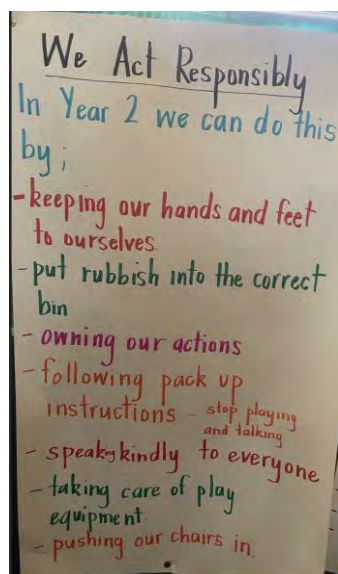 We Act Responsibly
In Year 2 we can do this
by;
- keeping our hands and feet
to ourselves
- put rubbish into the correct
bin
- owning our actions
- following pack up
instructions - stop playing
and talking
- speaking kindly to everyone
- taking care of play
equipment
- pushing our chairs in.